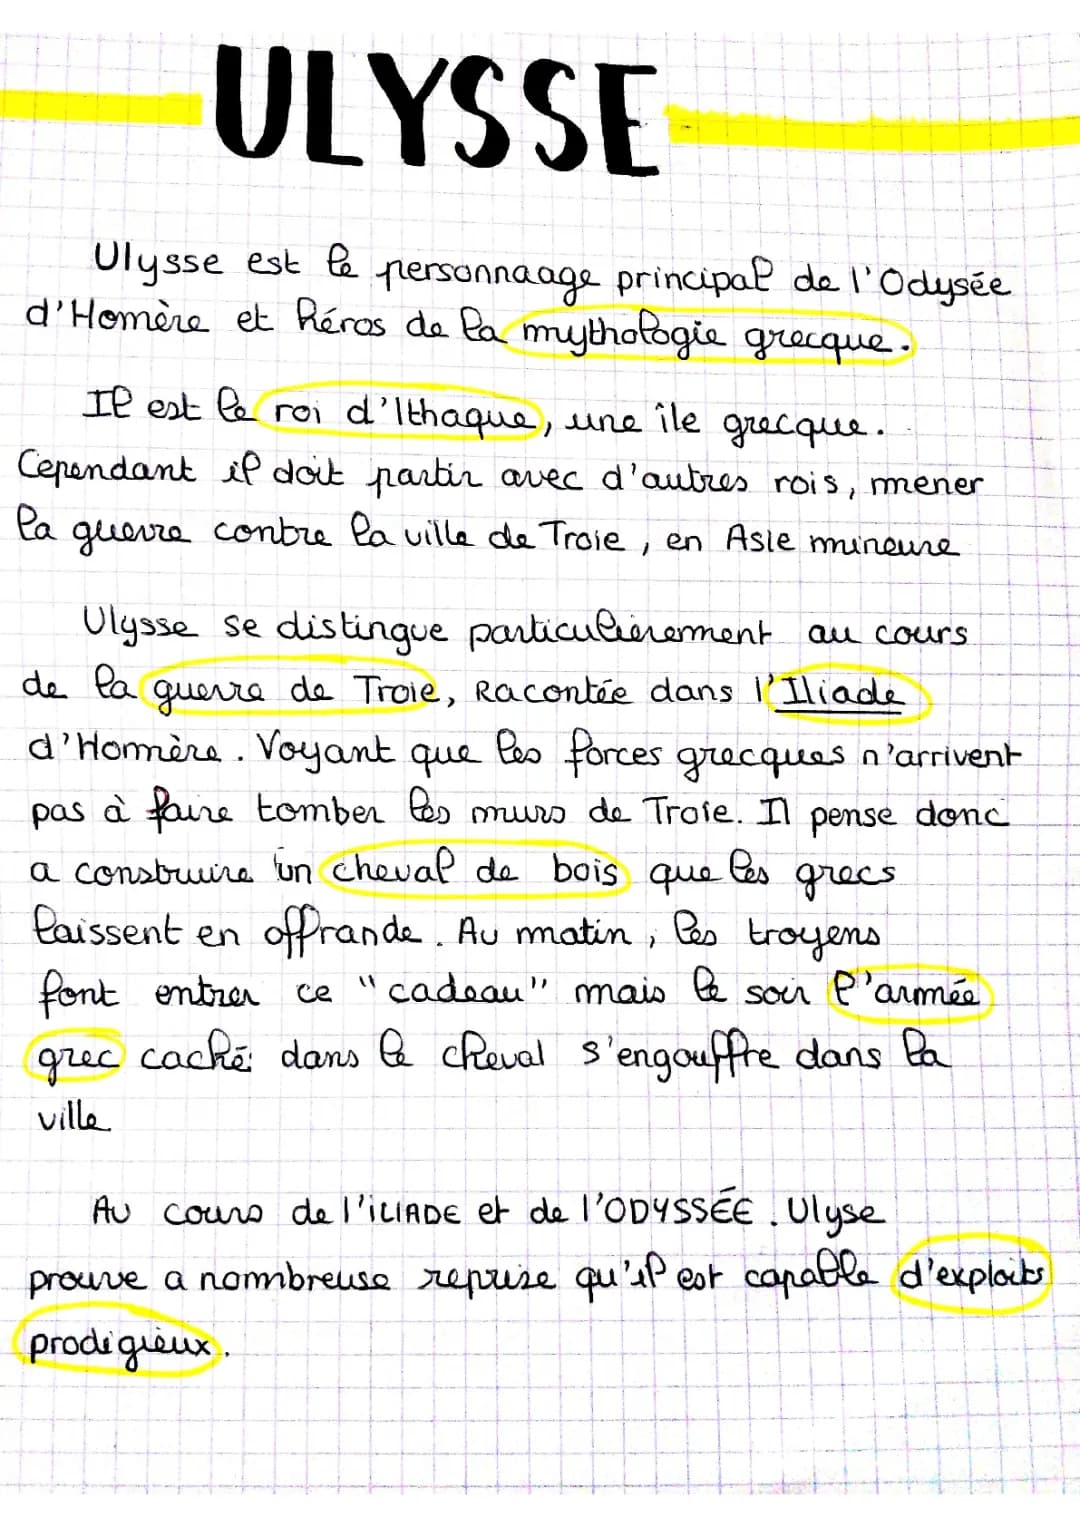 ULYSSE
Ulysse est le personnaage principal de l'Odysée
d'Homère et héros de la mythologie grecque.
Il est le roi d'Ithaque, une île grecque.
Cependant il doit partir avec d'autres rois, mener
la guerre contre la ville de Troie, en Asie mineure
Ulysse se distingue particulièrement au cours
de la guerre de Troie, Racontée dans l'Iliade
d'Homère. Voyant que les forces grecques n'arrivent
pas à faire tomber les murs de Troie. Il pense donc
a construire un cheval de bois que les grecs
laissent en offrande. Au matin, les troyens
font entrer ce "cadeau" mais le soir l'armée
grec caché dans le cheval s'engouffre dans la
ville.
Au cours de l'iLIADE et de l'ODYSSÉE. Ulyse
prouve a nombreuse reprise qu'il est capable d'exploits
prodigieux.